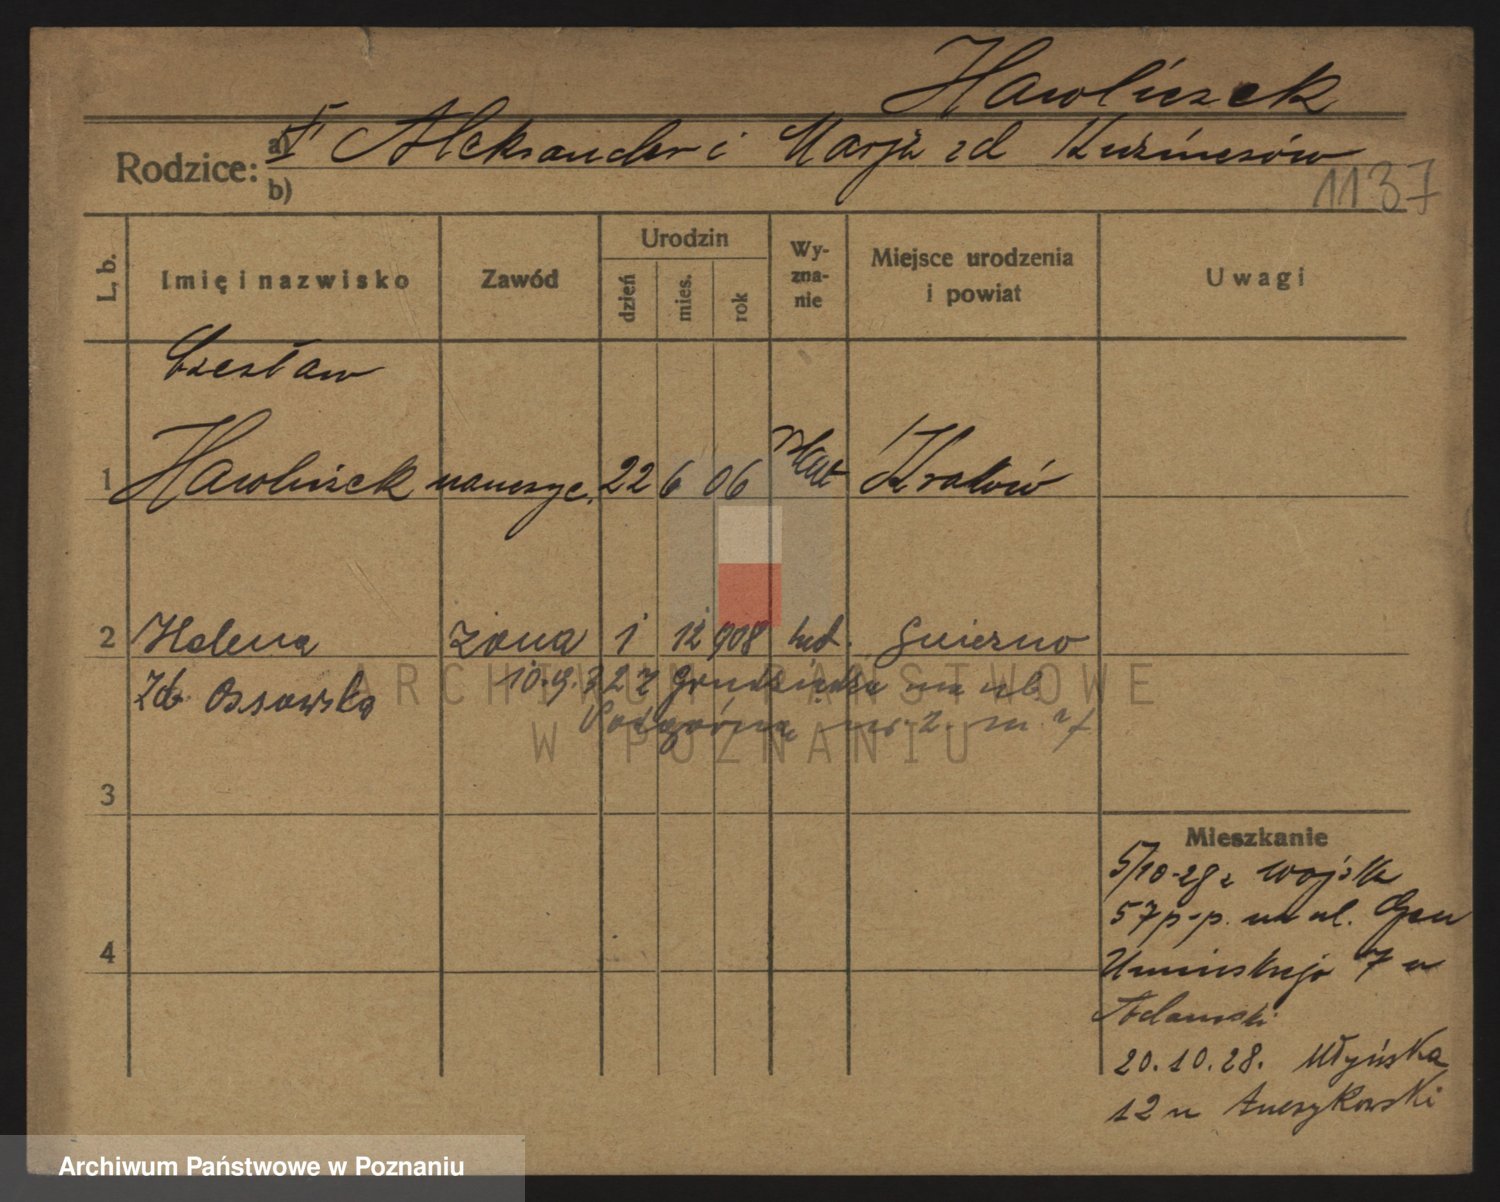 Hawliczek
Rodzice: a) Aleksander i Marja zd
b)
1137
L. b. Imię i nazwisko Zawód Urodzin dzień mies. rok Wy-zna-nie Miejsce urodzenia i powiat Uwagi
Czesław
1 Hawliczek nauczyc. 22 6 06 Kraków
2 Helena żona 1 12 908 kat. Gniezno
Zd. Ossowska 10.9.32 z Grudziądza na ul.
Podgórną nr. 2. m. 7
3
Mieszkanie
5/10-28 z wojsk
57 p.p. na ul. Gen
4
Umińskiego 7 u
Adamski
20.10.28. Młyńska
12 u
ARCHIWUM PAŃSTWOWE
W POZNANIU
Archiwum Państwowe w Poznaniu